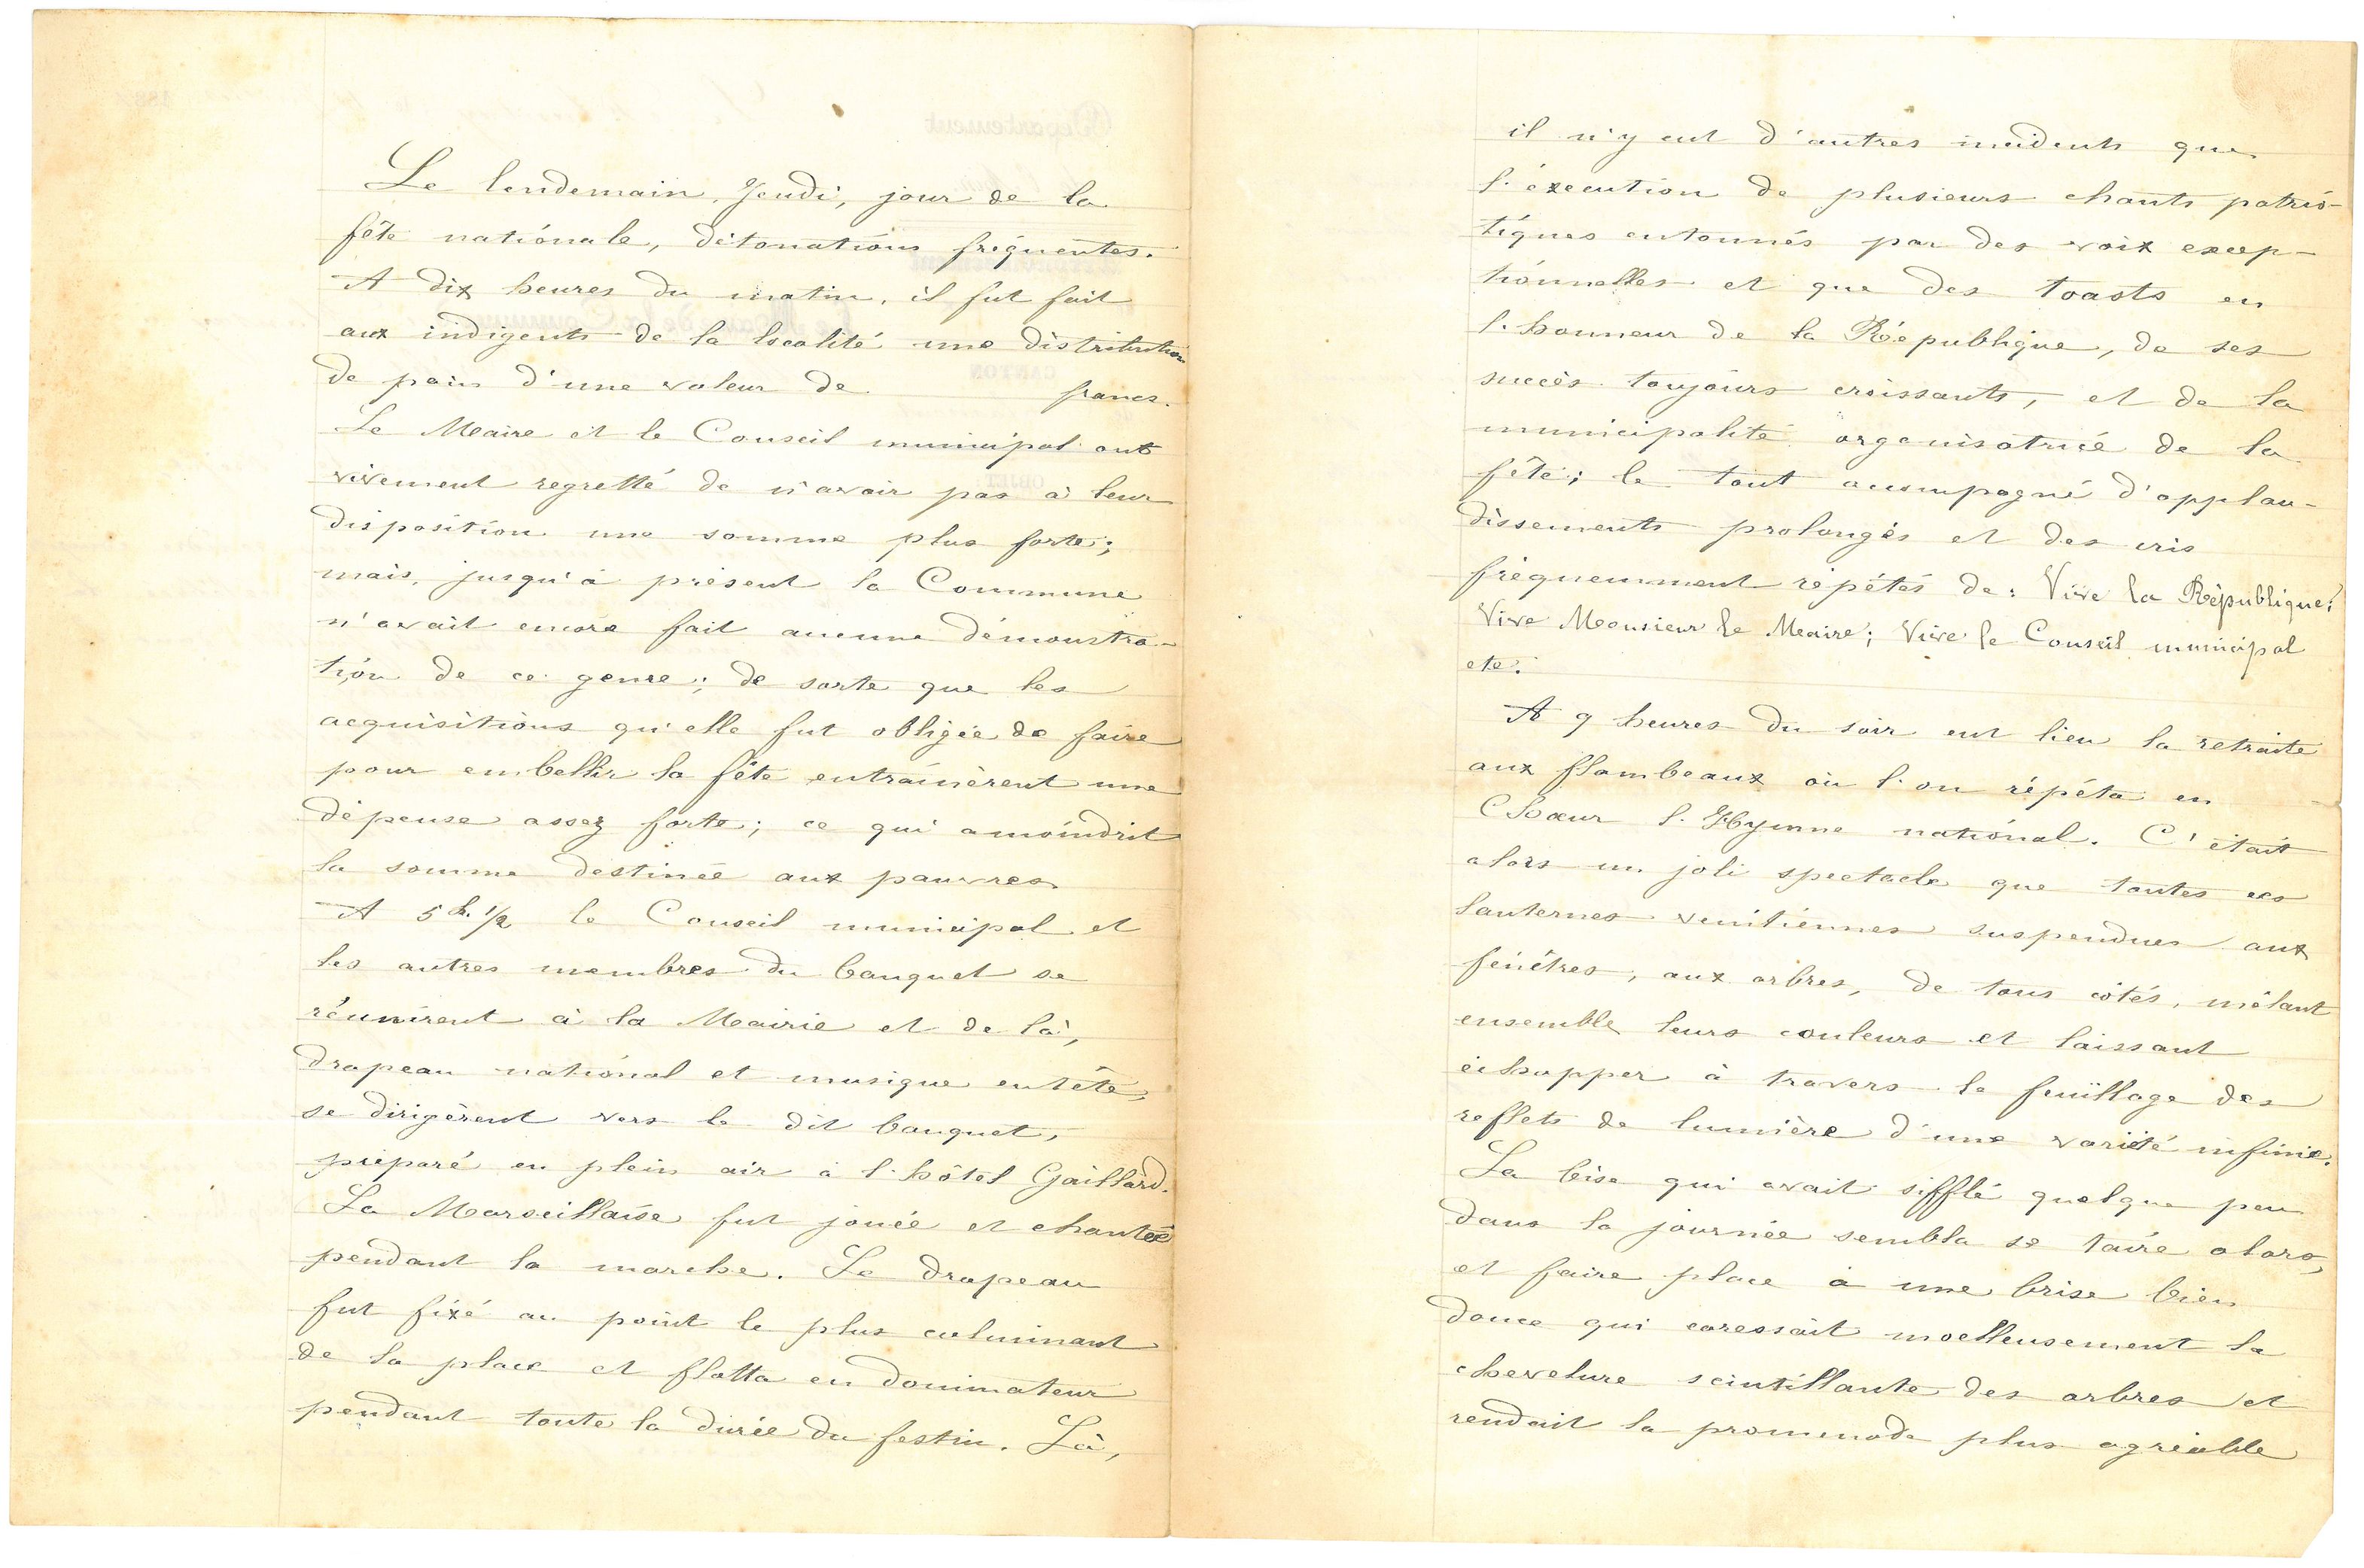 Le lendemain, Jeudi, jour de la
fête nationale, détonations fréquentes.
A dix heures du matin, il fut fait
aux indigents de la localité une distribution
de pain d'une valeur de francs.
Le Maire et le Conseil municipal ont
vivement regretté de n'avoir pas à leur
disposition une somme plus forte;
mais, jusqu'à présent la Commune
n'avait encore fait aucune démonstra-
tion de ce genre; de sorte que les
acquisitions qu'elle fut obligée de faire
pour embellir la fête entraînèrent une
dépense assez forte; ce qui amoindrit
la somme destinée aux pauvres.
A 5 h. 1/2 le Conseil municipal et
les autres membres du banquet se
réunirent à la Mairie et de là,
drapeau national et musique en tête,
se dirigèrent vers le dit banquet,
préparé en plein air à l'hôtel Gaillard.
La Marseillaise fut jouée et chantée
pendant la marche. Le drapeau
fut fixé au point le plus culminant
de la place et flotta en dominateur
pendant toute la durée du festin. Là,
il n'y eut d'autres incidents que
l'éxecution de plusieurs chants patrio-
tiques entonnés par des voix excep-
tionnelles et que des toasts en
l'honneur de la République, de ses
succès toujours croissants, et de la
municipalité organisatrice de la
fête; le tout accompagné d'applau-
dissements prolongés et des cris
fréquemment répétés de: Vive la République;
Vive Monsieur le Maire; Vive le Conseil municipal
etc.
A 9 heures du soir eut lieu la retraite
aux flambeaux où l'on répéta en
Chœur l'Hymne national. C'était
alors un joli spectacle que toutes ces
lanternes venitiennes suspendues aux
fenêtres, aux arbres, de tous côtés, mêlant
ensemble leurs couleurs et laissant
échapper à travers le feuillage des
reflets de lumière d'une variété infinie.
La bise qui avait sifflé quelque peu
dans la journée sembla se taire alors,
et faire place à une brise bien
douce qui caressait moelleusement la
chevelure scintillante des arbres et
rendait la promenade plus agréable